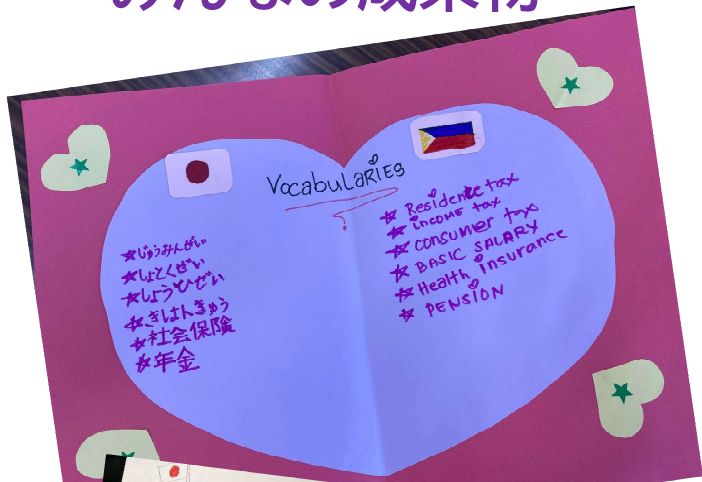 みんなの成果物
Vocabularies
★じゅうみんぜい
★しょとくぜい
★しょうひぜい
★きほんきゅう
★社会保険
★年金
★ Residence tax
★ income tax
★ consumer tax
★ BASIC SALARY
★ Health insurance
★ PENSION